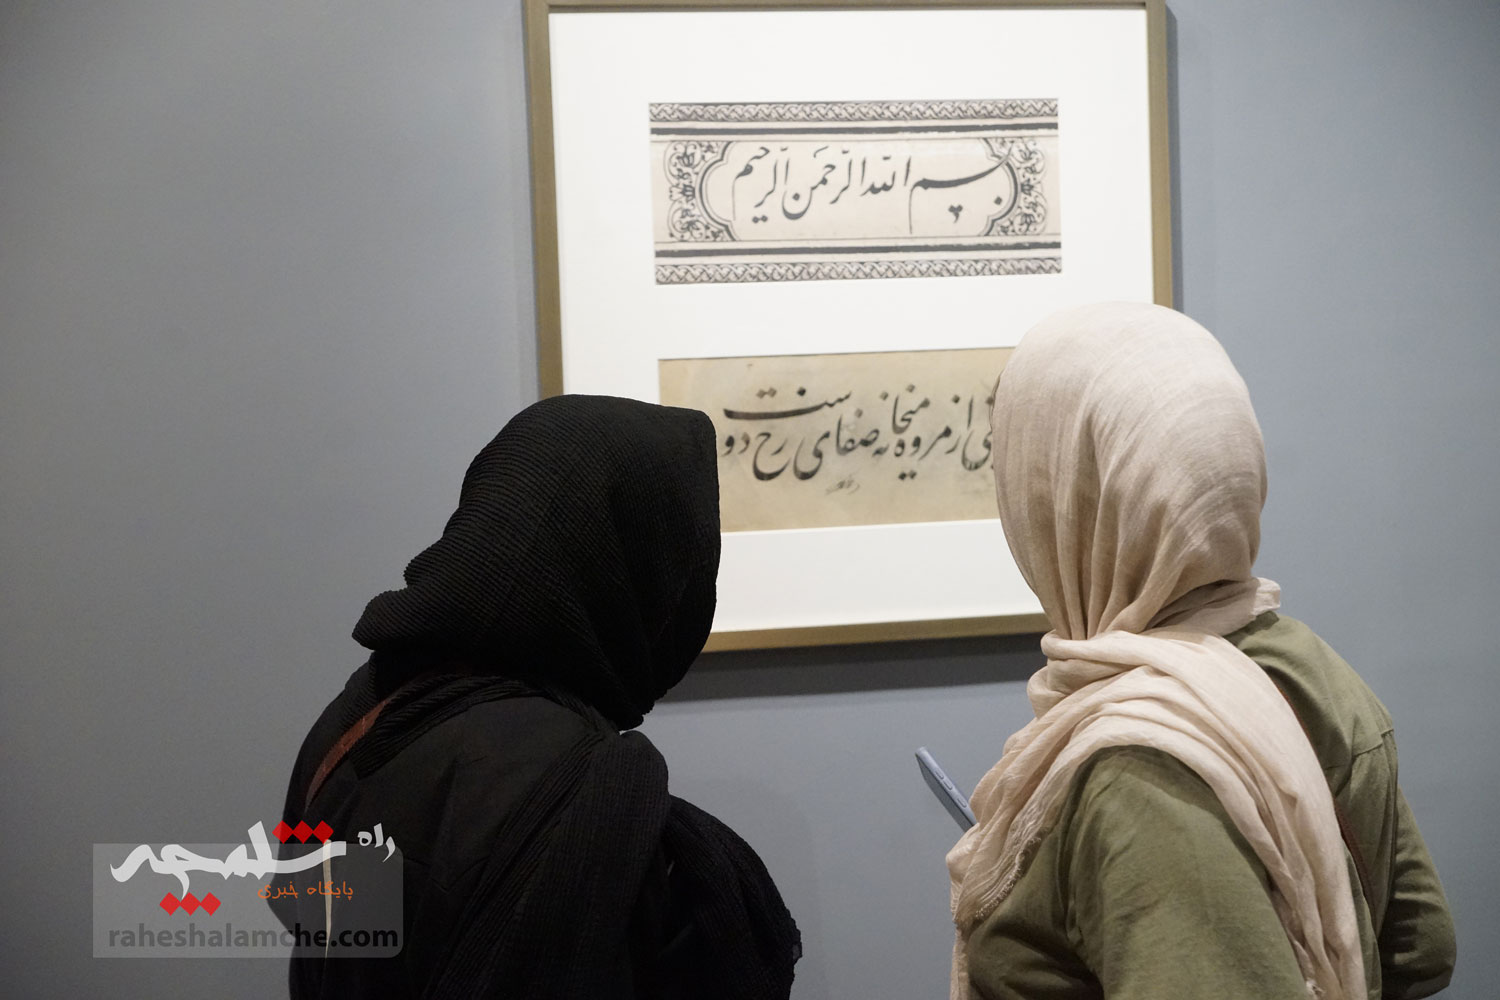 بسم الله الرحمن الرحیم
از مروه میخانه صفای رخ دوست
راه شلمچه
پایگاه خبری
raheshalamche.com